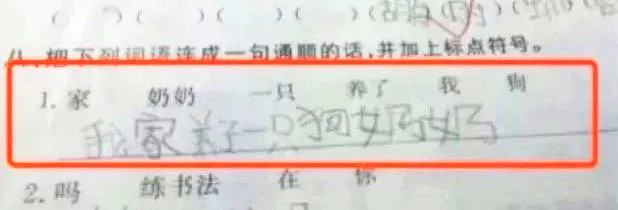 ( ) ( ) ( ) ( ) ( ) (
八、把下列词语连成一句通顺的话,并加上标点符号。
1. 家 奶奶 一只 养了 我 狗
我家养了一只狗奶奶
2. 吗 练书法 在 你